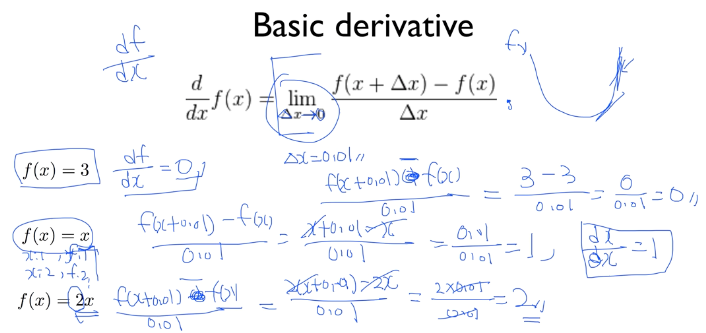 Basic derivative
df/dx
f(x)
d/dx f(x) = lim Δx→0 (f(x + Δx) − f(x))/Δx
Δx=0.01
f(x) = 3 df/dx = 0, (f(x+0.01) - f(x))/0.01 = (3-3)/0.01 = 0/0.01 = 0
f(x) = x (f(x+0.01) - f(x))/0.01 = (x+0.01-x)/0.01 = 0.01/0.01 = 1, dx/dx = 1
x=1, f=1
x=2, f=2
f(x) = 2x (f(x+0.01) - f(x))/0.01 = (2(x+0.01)-2x)/0.01 = (2×0.01)/0.01 = 2